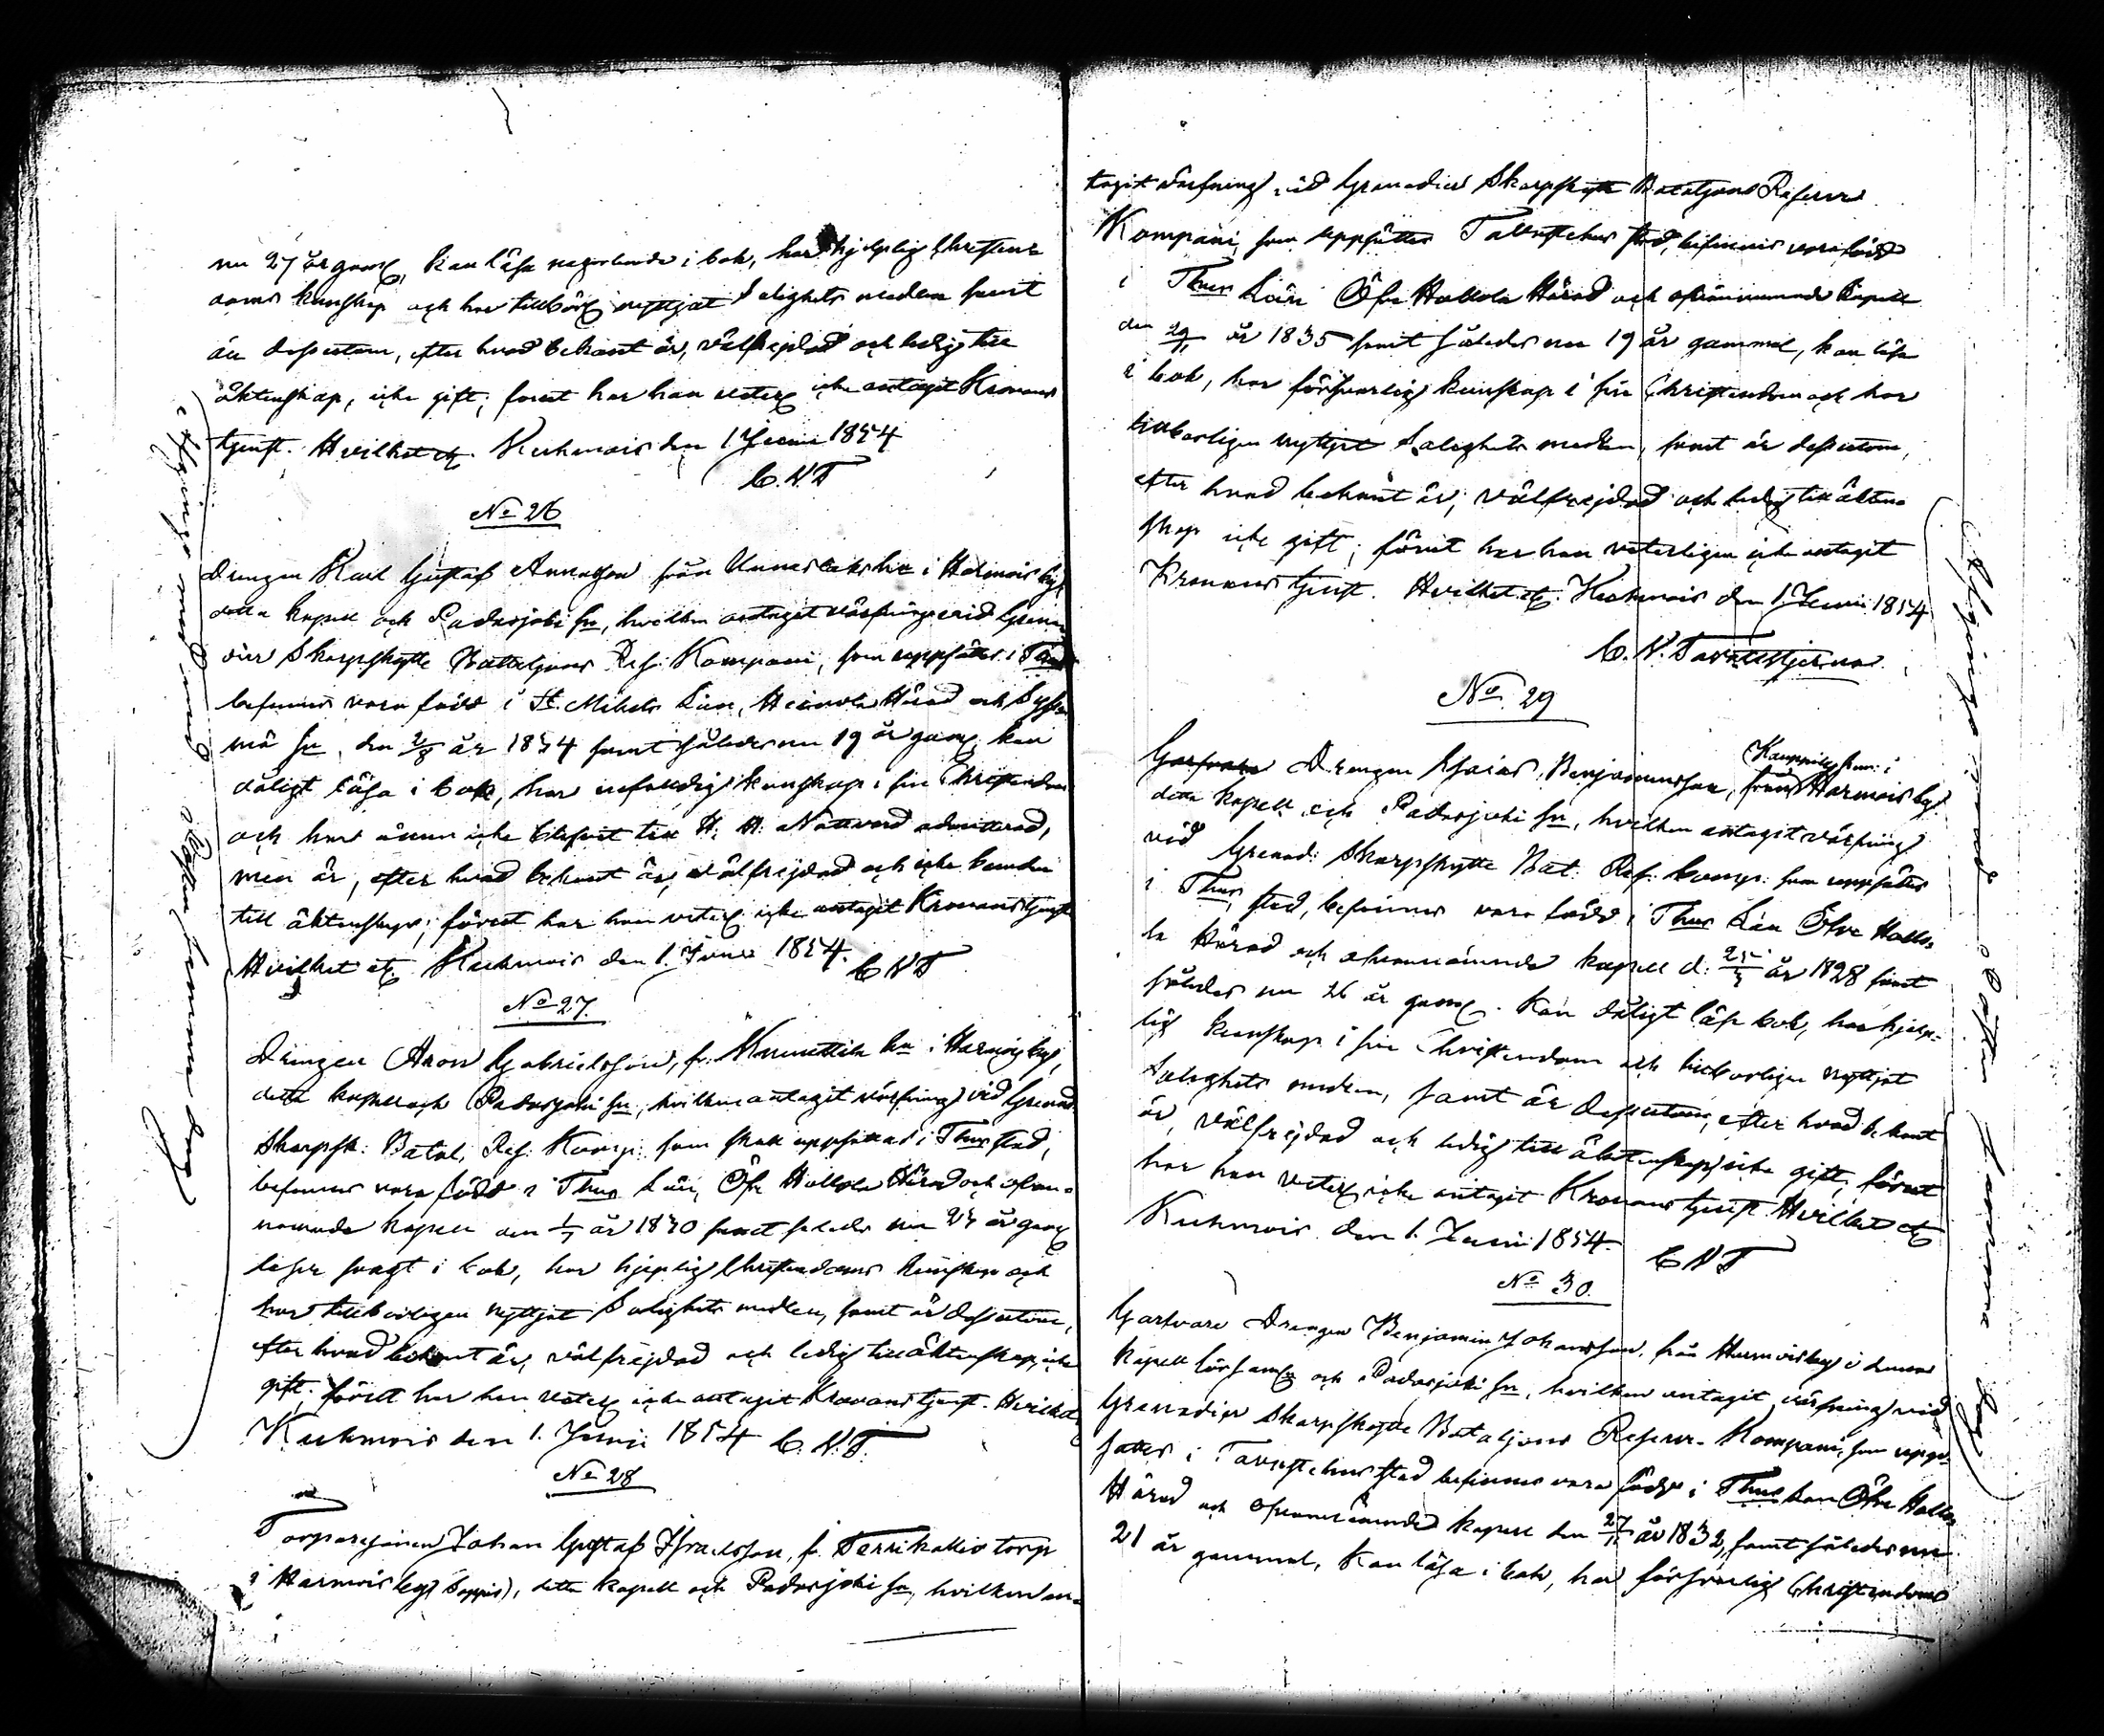 nu 27 år gaml, kan läsa nagorlunda i bok, har hjelplig Christen-
doms kunskap och har tillbörl nyttjat Salighets medlen samt
är dessutom, efter hvad bekant är, välfrejdad och ledig till
äktenskap, icke gift; förut har han veterl icke antagit Kronans
tjenst. Hvilket etc. Kuhmois den 1 Junii 1854
C.N.T
No 26
Drengen Karl Gustaf Annasson från i Harmois by,
detta kapell och Padasjoki sn, hvilken antagit värfning vid Grena-
dier Skarpskytte Bataljons Res: Kompani, som uppsättes i Thus
befinnes vara född i St. Mikels Län, Heinola Härad och Sysmä
sn, den 2/8 år 1834 samt således nu 19 år gaml, kan
dåligt läsa i bok, har enfaldig kunskap i sin Christendom
och har ännu icke blifvit till H. H. Nattvard admitterad,
men är, efter hvad bekant är, välfrejdad och icke bunden
till äktenskap; förut har han veterl icke antagit Kronans tjenst
Hvilket etc. Kuhmois den 1. Junii 1854. C N T
No 27.
Drengen Aron Gabrielsson, fr. hn i Harmois by,
detta kapell och Padasjoki sn, hvilken antagit värfning vid Grenad.
Skarpsk: Batal. Res: Komp: som skall uppsättas i Thus stad,
befinnes vara född i Thus Län, Öfre Hollola Härad och ofvan-
nämnde kapell den 1/7 år 1830 samt således nu 23 år gaml
läser svagt i bok, har hjelplig Christendoms kunskap och
har tillbörligen nyttjat Salighets medlen, samt är dessutom,
efter hvad bekant är, välfrejdad och ledig till äktenskap, icke
gift; förut har han veterl icke antagit Kronans tjenst. Hvilket
Kuhmois den 1. Junii 1854 C. N. T.
No 28
Torparesonen Johan Gustaf Israelsson, fr. Terrikallio torp
i Harmois by, detta kapell och Padasjoki sn, hvilken an-
tagit värfning vid Grenadier Skarpskytte Bataljons Reserve
Kompani, som uppsättes Tavastehus stad, befinnes vara född
i Thus Län Öfre Hollola Härad och ofvannämnde kapell
den 29/1 år 1835 samt således nu 19 år gammal, kan läsa
i bok, har försvarlig kunskap i sin Christendom och har
tillbörligen nyttjat Salighets medlen, samt är dessutom,
efter hvad bekant är, välfrejdad och ledig till äkten-
skap icke gift; förut har han veterligen icke antagit
Kronans tjenst. Hvilket etc. Kuhmois den 1 Junii 1854
C. N. Tavaststjerna.
No 29
Garfvare Drengen Esaias Benjaminsson, från Harmois by
detta kapell och Padasjoki sn, hvilken antagit värfning
vid Grenad: Skarpskytte Bat. Res: komp: som uppsättes
i Thus stad, befinnes vara född i Thus Län Öfre Hollo-
la Härad och ofvannämnde kapell d: 25/3 år 1828 samt
således nu 26 år gaml. Kan dåligt läsa bok, har hjelp-
lig kunskap i sin Christendom och tillbörligen nyttjat
Salighets medlen, samt är dessutom, efter hvad bekant
är, välfrejdad och ledig till äktenskap, icke gift; förut
har han veterl icke antagit Kronans tjenst. Hvilket etc
Kuhmois den 1. Junii 1854. C N T
No 30.
Garfvare Drengen Benjamin Johansson, från Harmois by i denna
kapell församl och Padasjoki sn, hvilken antagit värfning vid
Grenadier Skarpskytte Bataljons Reserv-Kompani, som upp-
sättes i Tavastehus stad befinnes vara född i Thus Län Öfre Hollola
Härad och ofvannämnde kapell den 27/11 år 1832, samt således nu
21 år gammal, kan läsa i bok, har försvarlig Christendoms